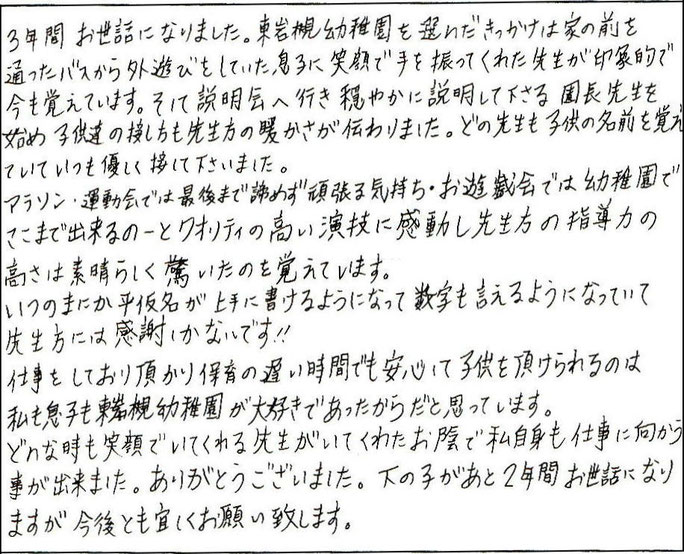 3年間 お世話になりました。東岩槻幼稚園を選んだきっかけは家の前を
通ったバスから外遊びをしていた息子に笑顔で手を振ってくれた先生が印象的で
今も覚えています。そして説明会へ行き穏やかに説明して下さる園長先生を
始め子供達の接し方も先生方の暖かさが伝わりました。どの先生も子供の名前を覚え
ていていつも優しく接して下さいました。
マラソン・運動会では最後まで諦めず頑張る気持ち・お遊戯会では幼稚園で
ここまで出来るのーとクオリティの高い演技に感動し先生方の指導力の
高さは素晴らしく驚いたのを覚えています。
いつのまにか平仮名が上手に書けるようになって数字も言えるようになっていて
先生方には感謝しかないです!!
仕事をしており頂かり保育の遅い時間でも安心して子供を頂けられるのは
私も息子も東岩槻幼稚園が大好きであったからだと思っています。
どんな時も笑顔でいてくれる先生がいてくれたお陰で私自身も仕事に向かう
事が出来ました。ありがとうございました。下の子があと2年間お世話になり
ますが今後とも宜しくお願い致します。